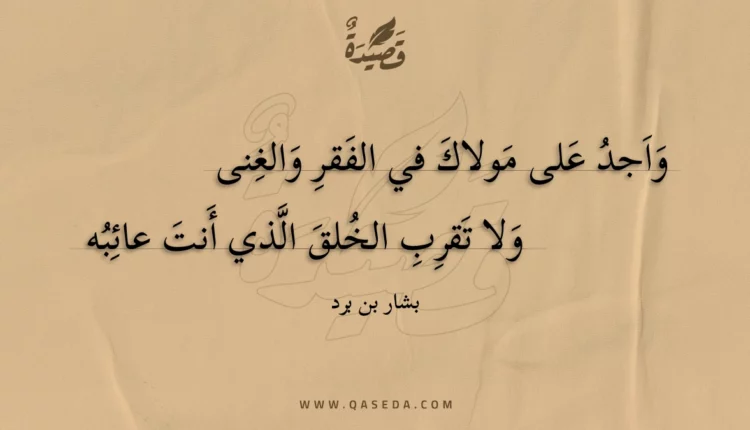 قَصِيْدَةٌ
وَاَجدُ عَلى مَولاكَ في الفَقرِ وَالغِنى
وَلا تَقرِبِ الخُلقَ الَّذي أَنتَ عائِبُه
بشار بن برد
WWW.QASEDA.COM